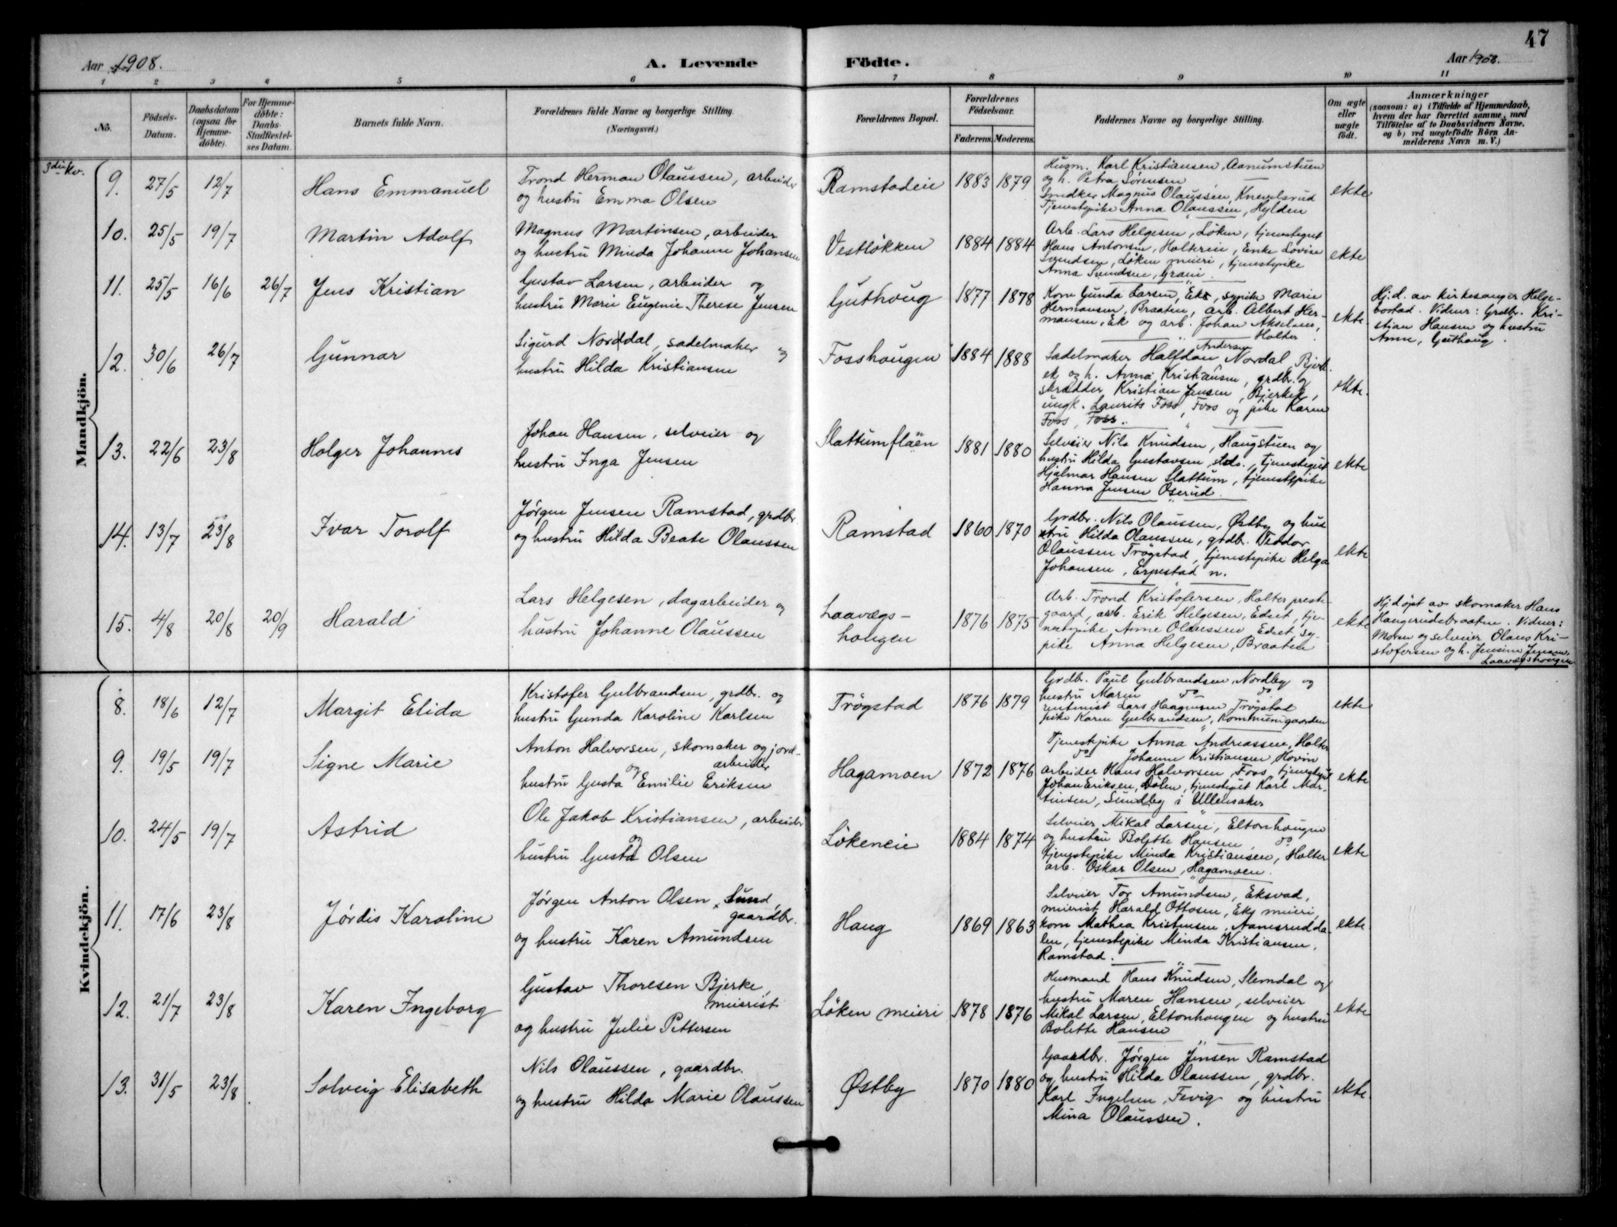 47
Aar 1908. A. Levende Födte. Aar 1908.
1 2 3 4 5 6 7 8 9 10 11
No. Födsels-Datum. Daabsdatum (ogsaa for Hjemme-døbte). For Hjemme-døbte: Daabs-Stadfæstel-ses Datum. Barnets fulde Navn. Forældrenes fulde Navne og borgerlige Stilling (Næringsvei.) Forældrenes Bopæl. Forældrenes Födselsaar. Faderens. Moderens. Faddernes Navne og borgerlige Stilling. Om ægte eller uægte født. Anmærkninger (saasom: a) i Tilfælde af Hjemmedaab, hvem der har forrettet samme, med Tilföielse af to Daabsvidners Navne, og b) ved uægtefødte Börn Anmelderens Navn m. V.)
3die Kv.
Mandkjön.
9. 27/5 12/7 Hans Emmanuel
Trond Herman Olaussen, arbeider
og hustru Emma Olsen
Ramstadeie 1883 1879
Husm. Karl Kristiansen, Aanumstuen
og h. Petra Sørensen
Magnus Olaussen,
Tjenestepike Anna Olaussen, Hylden
ekte
10. 25/5 19/7 Martin Adolf
Magnus Martinsen, arbeider
og hustru Minda Johanne Johansen
Vestløkken 1884 1884
Arb. Lars Helgesen, Løken, tjenestegut
Hans Antonsen, Enke Lovise
Svendsen, Løken meieri, tjenestepike
Anna Svendsen,
ekte
11. 25/5 16/6 26/7 Jens Kristian
Gustav Larsen, arbeider og
hustru Marie Eugenie Therese Jensen
Guthoug 1877 1878
Kone Gunda Larsen, Ek, sypike Marie
Hermansen, Braaten, arb. Albert Her-
mansen, Ek og arb. Johan Akselsen,
Holter
ekte
Hj.d. av kirkesanger Helge-
bostad. Vidner: Grdbr. Kri-
stian Hansen og hustru
Anne, Guthoug.
12. 30/6 26/7 Gunnar
Sigurd Norddal, sadelmaker og
hustru Hilda Kristiansen
Fosshougen 1884 1888
Sadelmaker Halfdan Andersen Nordal,
ek og h. Anna Kristiansen, grdbr. og
skrædder Kristian Jensen, Bjerke,
ungk. Laurits Foss, Foss og pike Karen
Foss, Foss.
ekte
13. 22/6 23/8 Holger Johannes
Johan Hansen, selveier og
hustru Inga Jensen
Slattumflaen 1881 1880
Selveier Nils Knudsen, Haugstuen og
hustru Hilda Gustavsen, stds., tjenestegut
Hjalmar Hansen Slattum, tjenestepike
Hanna Jensen Øserud.
ekte
14. 13/7 23/8 Ivar Torolf
Jørgen Jensen Ramstad, grdbr.
og hustru Hilda Beate Olaussen
Ramstad 1860 1870
Grdbr. Nils Olaussen, Østby og hus-
tru Hilda Olaussen, grdbr. Teodor
Olaussen Trøgstad, tjenestepike Helga
Johansen, Erpestad n.
ekte
15. 4/8 20/8 20/9 Harald
Lars Helgesen, dagarbeider og
hustru Johanne Olaussen
Laavægs-
hougen 1876 1875
Arb. Trond Kristofersen, Holter prest-
gaard, arb. Erik Helgesen, Edset, tje-
nestepike Anne Olaussen Edset, sy-
pike Anna Helgesen, Braaten
ekte
Hj.døpt av skomaker Hans
Haugerudsbraaten. Vidner:
Moren og selveier Olaus Kri-
stofersen og h. Jensine Jensen,
Laavægshougen
Kvindekjön.
8. 18/6 12/7 Margit Elida
Kristofer Gulbrandsen, grdbr. og
hustru Gunda Karoline Karlsen
Trøgstad 1876 1879
Grdbr. Paul Gulbrandsen, Nordby og
hustru Maren do do
rentenist Lars Haagensen Trøgstad
pike Karen Gulbrandsen, Kommunegaarden
ekte
9. 19/5 19/7 Signe Marie
Anton Halvorsen, skomaker og jord-
arbeider
og
hustru Gusta Emilie Eriksen
Hagamoen 1872 1876
Tjenestepike Anna Andreassen, Holter
do Johanne Kristiansen, Hovin
arbeider Hans Halvorsen, Foss, tjenestegut
Johan Eriksen, Dølen, tjenestegut Karl Mar-
tinsen, Sundby i Ullensaker
ekte
10. 24/5 19/7 Astrid
Ole Jakob Kristiansen, arbeider
og
hustru Gusta Olsen
Løkeneie 1884 1874
Selveier Mikal Larsen, Eltonhougen
og hustru Bolette Hansen do
tjenestepike Minda Kristiansen, Holter
arb. Oskar Olsen, Hagamoen.
ekte
11. 17/6 23/8 Jørdis Karoline
Jørgen Anton Olsen Lund,
gaardbr.
og hustru Karen Amundsen
Haug 1869 1863
Selveier Tor Amundsen, Eksvad,
meierist Harald Ottosen, Ek meieri,
kone Mathea Kristensen, Aamsrudda-
len, tjenestepike Minda Kristiansen,
Ramstad.
ekte
12. 21/7 23/8 Karen Ingeborg
Gustav Thoresen Bjerke,
meierist
og hustru Julie Pettersen
Løken meieri 1878 1876
Husmand Hans Knudsen, Slemdal og
hustru Maren Hansen, selveier
Mikal Larsen, Eltonhougen og hustru
Bolette Hansen
ekte
13. 31/5 23/8 Solveig Elisabeth
Nils Olaussen, gaardbr.
og hustru Hilda Marie Olaussen
Østby 1870 1880
Gaardbr. Jørgen Jensen Ramstad
og hustru Hilda Olaussen, grdbr.
Karl Ingelsen, Fevig og hustru
Mina Olaussen.
ekte